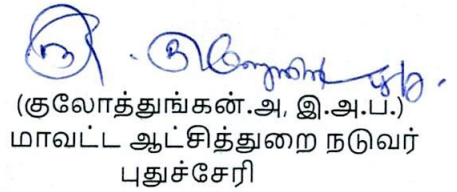 (குலோத்துங்கன்.அ, இ.அ.ப.)
மாவட்ட ஆட்சித்துறை நடுவர்
புதுச்சேரி